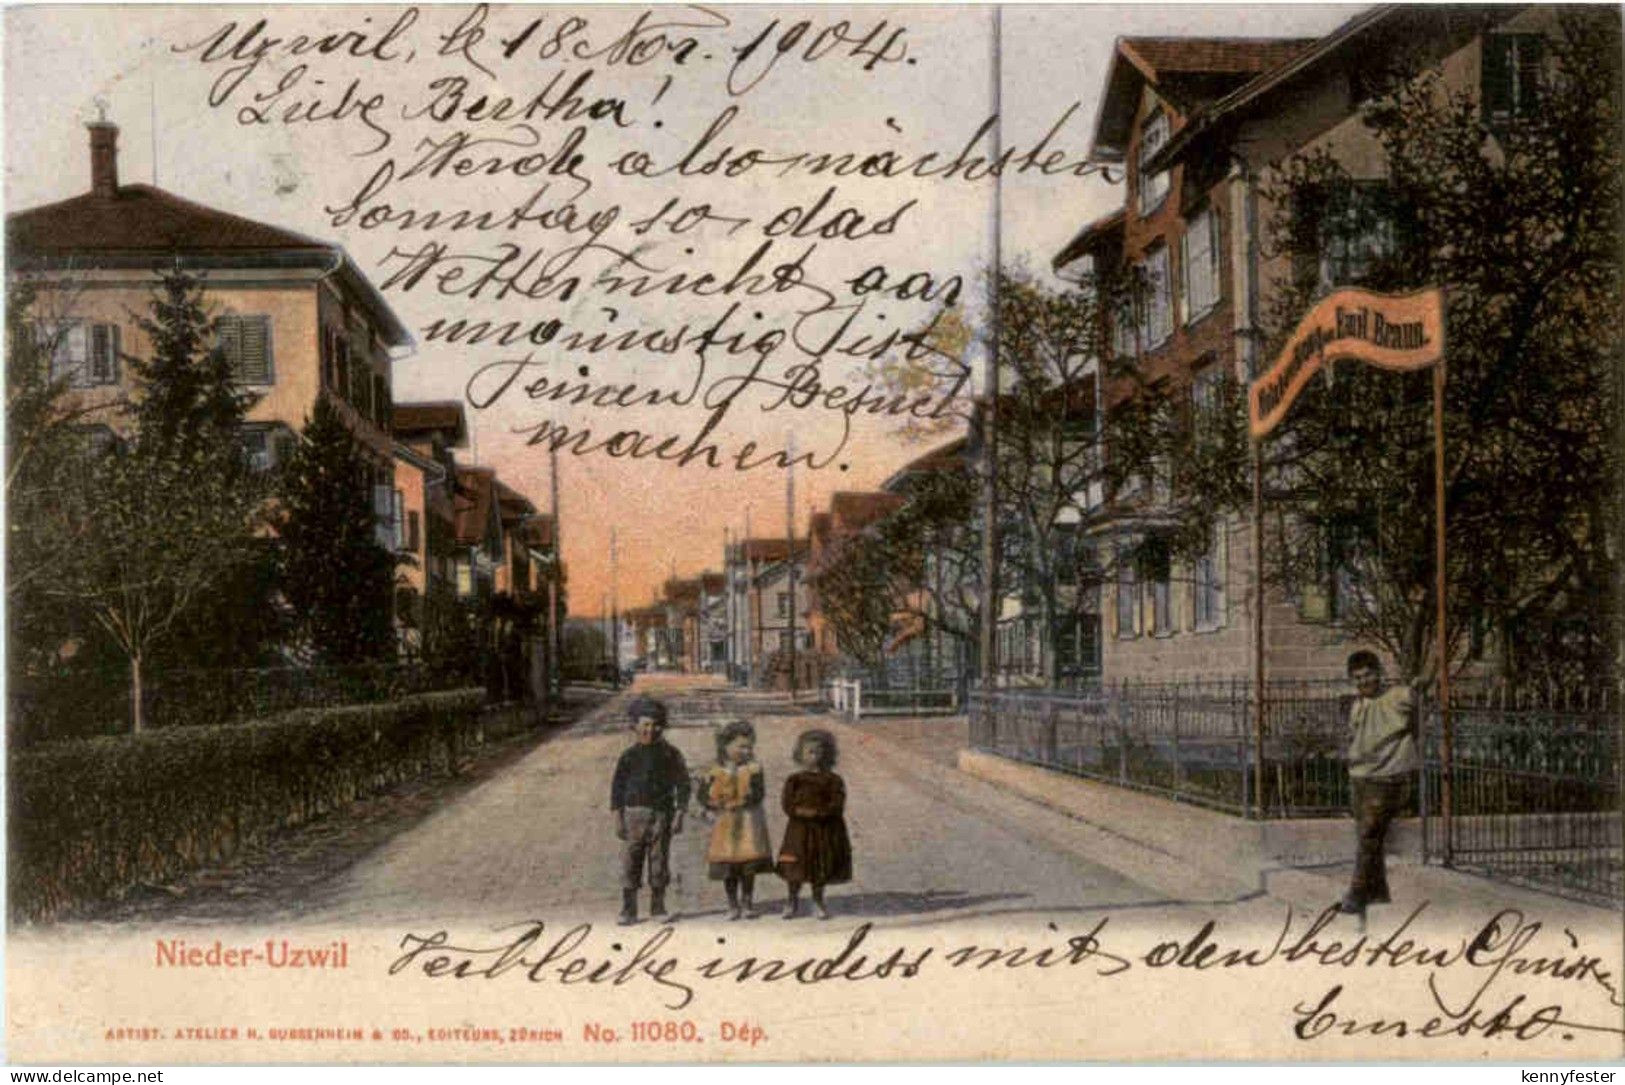 Uzwil, le 18. Nov. 1904.
Liebe Bertha!
Werde also nächsten
Sonntag so das
Wetter nicht gar
ungünstig ist
einen Besuch
machen.
Emil Braun.
Nieder-Uzwil
Verbleibe indess mit den besten Grüssen
Ernesto.
ARTIST. ATELIER H. GUGGENHEIM & CO., EDITEURS, ZÜRICH No. 11080. Dép.
www.delcampe.net
kennyfester